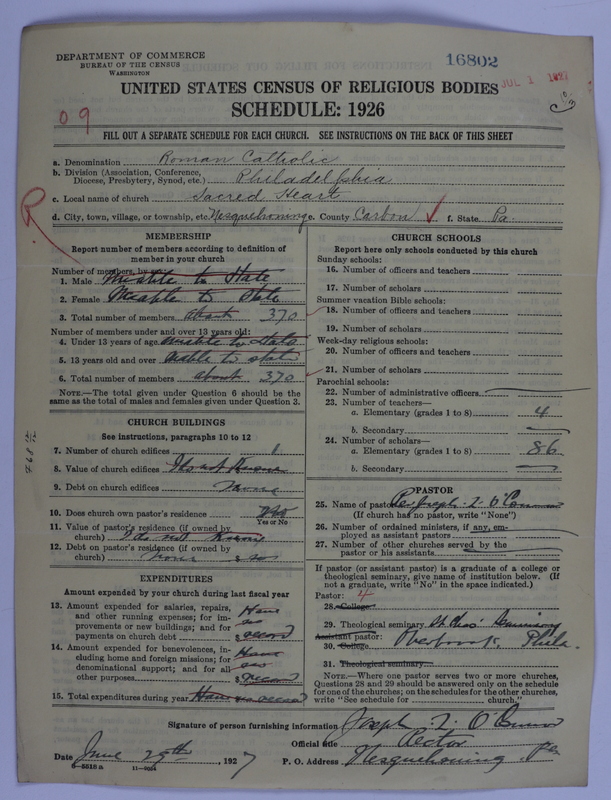 DEPARTMENT OF COMMERCE
BUREAU OF THE CENSUS
WASHINGTON
16802
JUL 1 1927
UNITED STATES CENSUS OF RELIGIOUS BODIES
SCHEDULE: 1926
09
FILL OUT A SEPARATE SCHEDULE FOR EACH CHURCH. SEE INSTRUCTIONS ON THE BACK OF THIS SHEET
a. Denomination Roman Catholic
b. Division (Association, Conference, Diocese, Presbytery, Synod, etc.) Philadelphia
c. Local name of church Sacred Heart
d. City, town, village, or township, etc. Nesquehoning e. County Carbon f. State Pa.
R
MEMBERSHIP
Report number of members according to definition of member in your church
Number of members, by sex:
1. Male Unable to State
2. Female Unable to State
3. Total number of members about 370
Number of members under and over 13 years old:
4. Under 13 years of age unable to State
5. 13 years old and over unable to state
6. Total number of members about 370
NOTE.—The total given under Question 6 should be the same as the total of males and females given under Question 3.
CHURCH BUILDINGS
See instructions, paragraphs 10 to 12
7. Number of church edifices 1
8. Value of church edifices I do not Know
9. Debt on church edifices none
10. Does church own pastor's residence Yes
Yes or No
11. Value of pastor's residence (if owned by church) I do not Know
12. Debt on pastor's residence (if owned by church) none $ no
EXPENDITURES
Amount expended by your church during last fiscal year
13. Amount expended for salaries, repairs, and other running expenses; for improvements or new buildings; and for payments on church debt Have no record
14. Amount expended for benevolences, including home and foreign missions; for denominational support; and for all other purposes Have no $ Record
15. Total expenditures during year Have no record
CHURCH SCHOOLS
Report here only schools conducted by this church
Sunday schools:
16. Number of officers and teachers
17. Number of scholars
Summer vacation Bible schools:
18. Number of officers and teachers
19. Number of scholars
Week-day religious schools:
20. Number of officers and teachers
21. Number of scholars
Parochial schools:
22. Number of administrative officers
23. Number of teachers—
a. Elementary (grades 1 to 8) 4
b. Secondary —
24. Number of scholars—
a. Elementary (grades 1 to 8) 86
b. Secondary —
PASTOR
25. Name of pastor Rev Joseph L. O'Connor
(If church has no pastor, write "None")
26. Number of ordained ministers, if any, employed as assistant pastors
27. Number of other churches served by the pastor or his assistants
If pastor (or assistant pastor) is a graduate of a college or theological seminary, give name of institution below. (If not a graduate, write "No" in the space indicated.)
Pastor: 4
28. College
29. Theological seminary St Chas' Seminary
Assistant pastor: Overbrook, Phila.
30. College
31. Theological seminary
NOTE.—Where one pastor serves two or more churches, Questions 28 and 29 should be answered only on the schedule for one of the churches; on the schedules for the other churches, write "See schedule for church."
Signature of person furnishing information Joseph L. O'Connor
Official title Rector
Date June 29th, 1927 P. O. Address Nesquehoning Pa
6—5516 a 11—9034